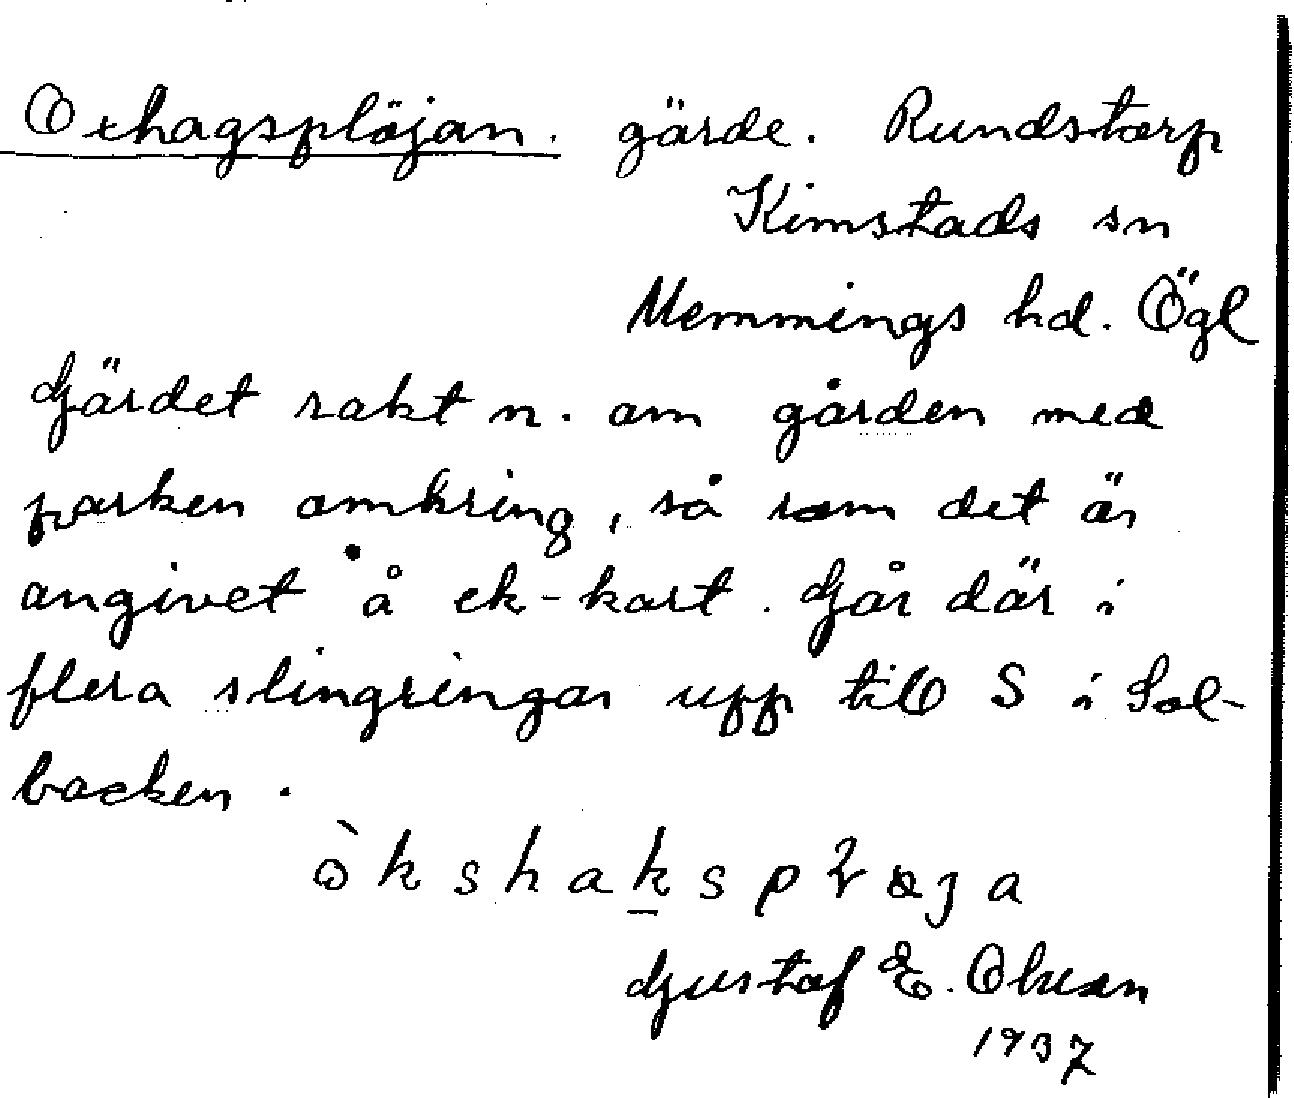 Oxhagsplöjan. gärde. Rundstorp
Kimstads sn
Memmings hd. Ögl
Gärdet rakt n. om gården med
parken omkring, så som det är
angivet å ek-kart. Går där i
flera slingringar upp till S i Sol-
backen.
òkshaksp
Gustaf E. Olsson
1937